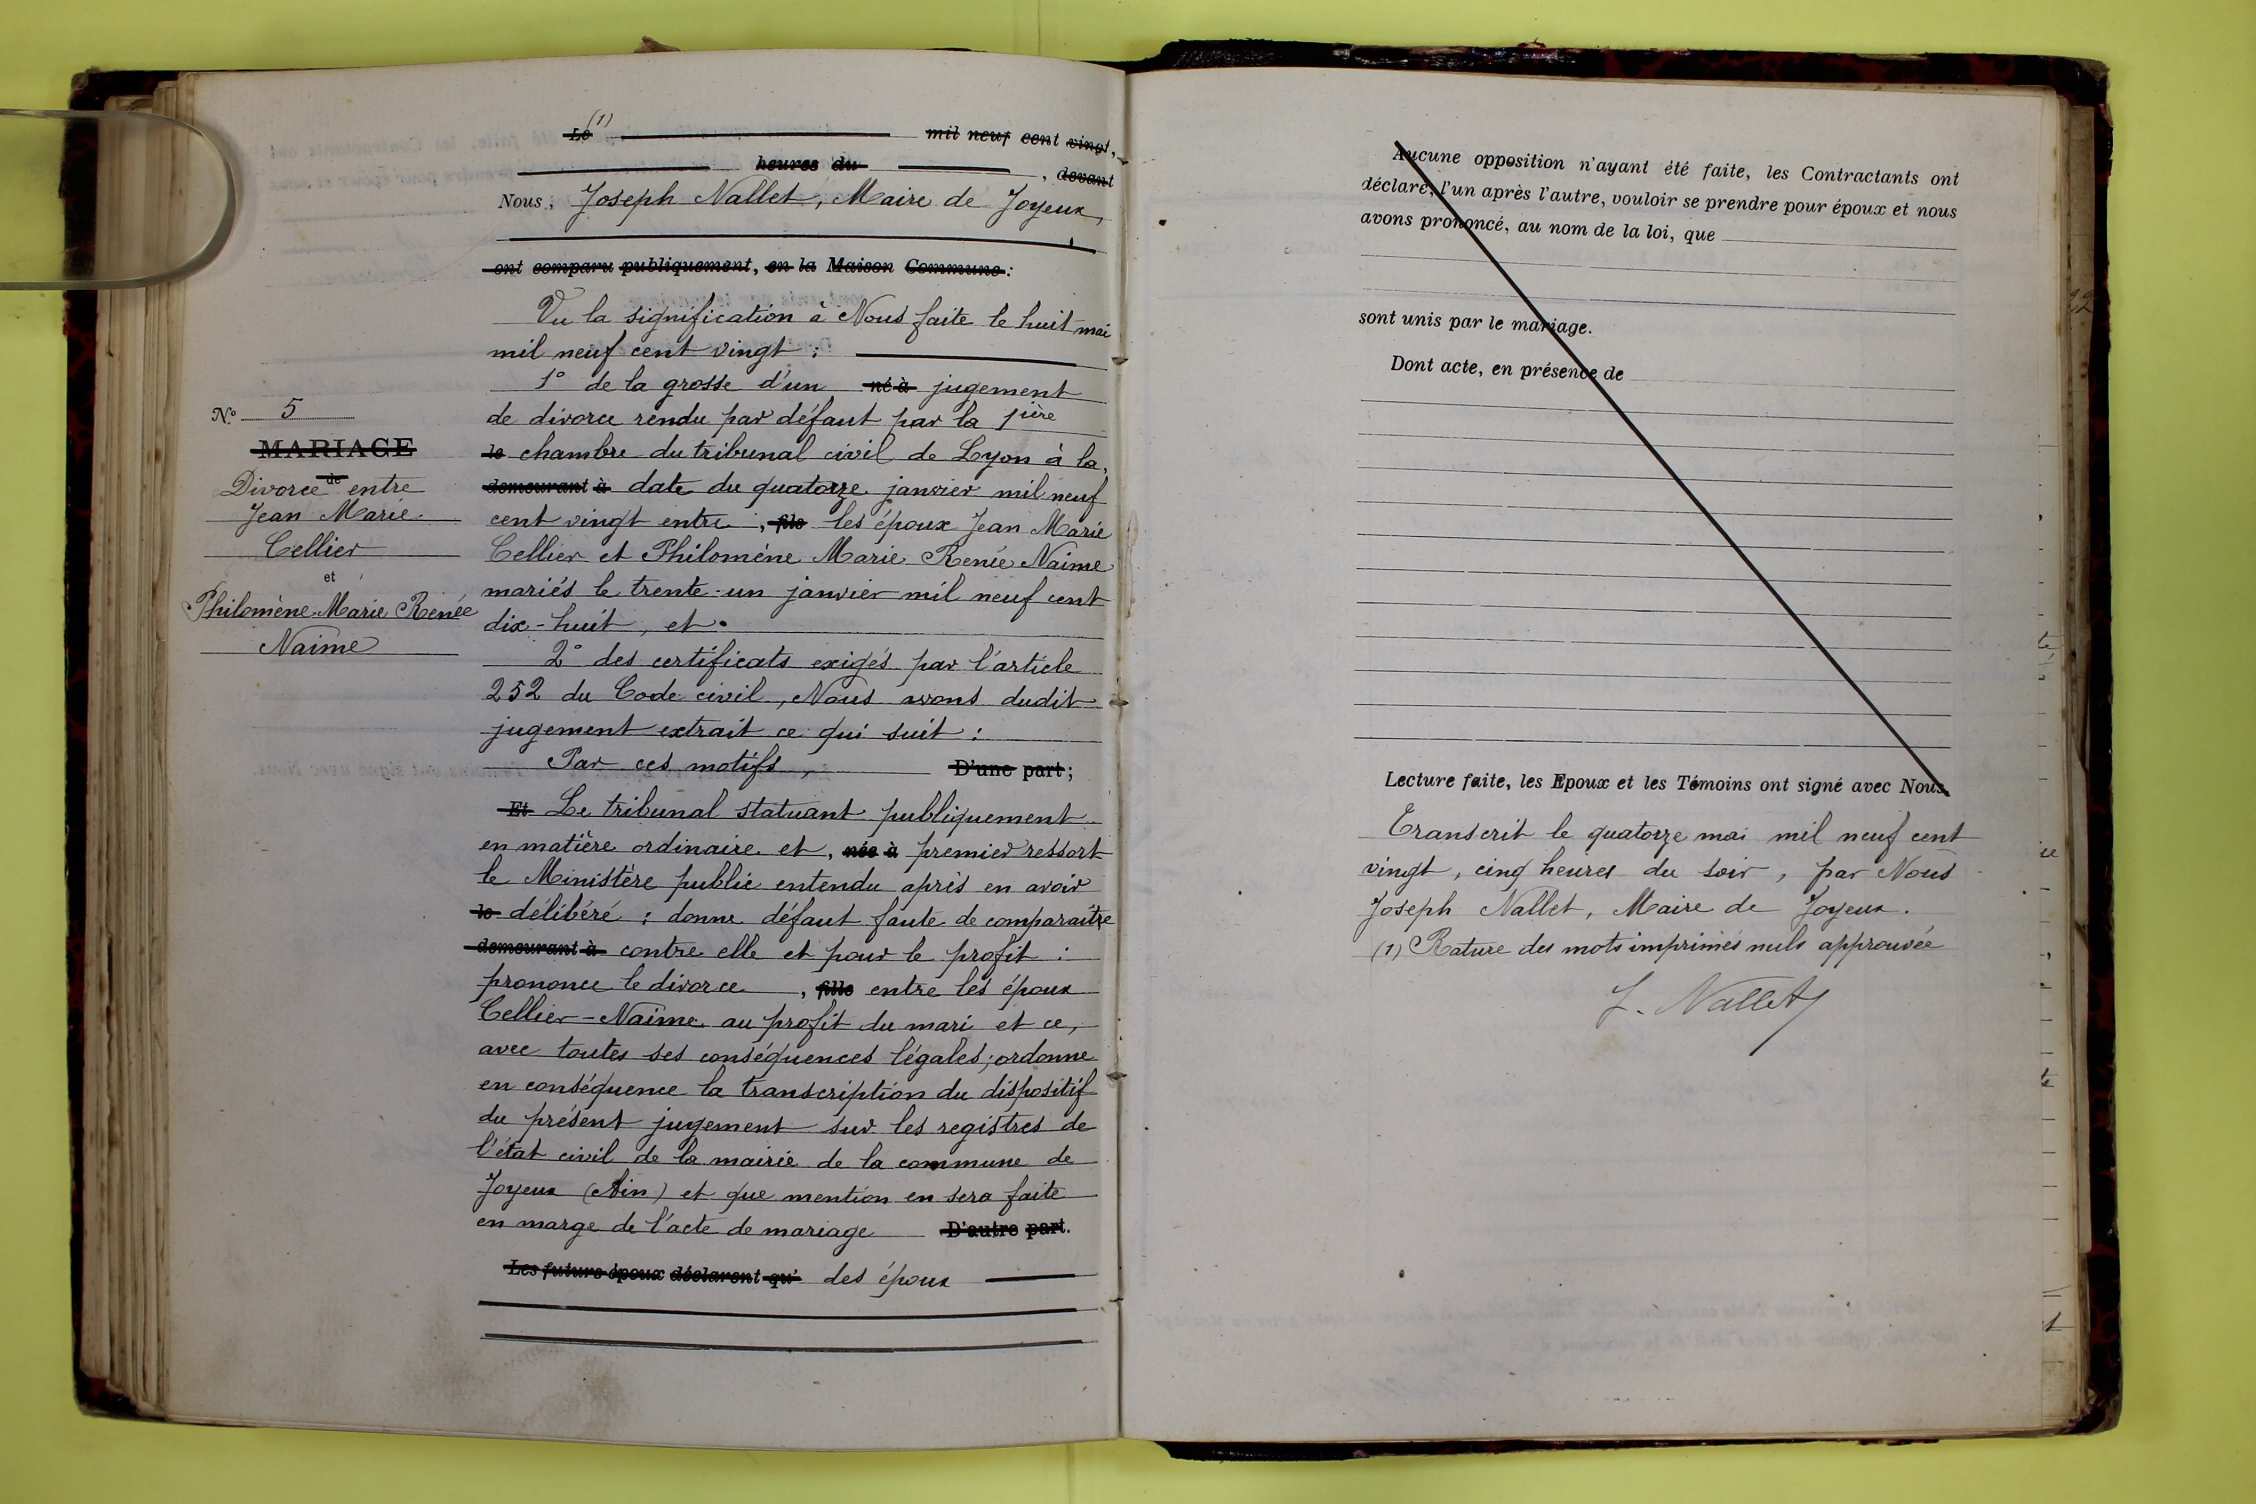 N.° 5
MARIAGE
de
Divorce entre
Jean Marie
Cellier
et
Philomène Marie Renée
Naime
Le (1) mil neuf cent vingt,
heures du , devant
Nous, Joseph Nallet, Maire de Joyeux,
ont comparu publiquement, en la Maison Commune :
Vu la signification à Nous faite le huit mai
mil neuf cent vingt :
1° de la grosse d'un né à jugement
de divorce rendu par défaut par la 1ière
le chambre du tribunal civil de Lyon à la
demeurant à date du quatorze janvier mil neuf
cent vingt entre , fils les époux Jean Marie
Cellier et Philomène Marie Renée Naime
mariés le trente-un janvier mil neuf cent
dix-huit, et
2° des certificats exigés par l'article
252 du Code civil, Nous avons dudit
jugement extrait ce qui suit :
Par ces motifs, D'une part ;
Et Le tribunal statuant publiquement
en matière ordinaire et , née à premier ressort
le Ministère public entendu après en avoir
le délibéré : donne défaut faute de comparaître
demeurant à contre elle et pour le profit :
prononce le divorce , fille entre les époux
Cellier-Naime au profit du mari et ce,
avec toutes ses conséquences légales; ordonne
en conséquence la transcription du dispositif
du présent jugement sur les registres de
l'état civil de la mairie de la commune de
Joyeux (Ain) et que mention en sera faite
en marge de l'acte de mariage D'autre part.
Les futurs époux déclarent qu' des époux
Aucune opposition n'ayant été faite, les Contractants ont
déclaré, l'un après l'autre, vouloir se prendre pour époux et nous
avons prononcé, au nom de la loi, que
sont unis par le mariage.
Dont acte, en présence de
Lecture faite, les Epoux et les Témoins ont signé avec Nous.
Transcrit le quatorze mai mil neuf cent
vingt, cinq heures du soir, par Nous
Joseph Nallet, Maire de Joyeux.
(1) Rature des mots imprimés nuls approuvée
J. Nallet